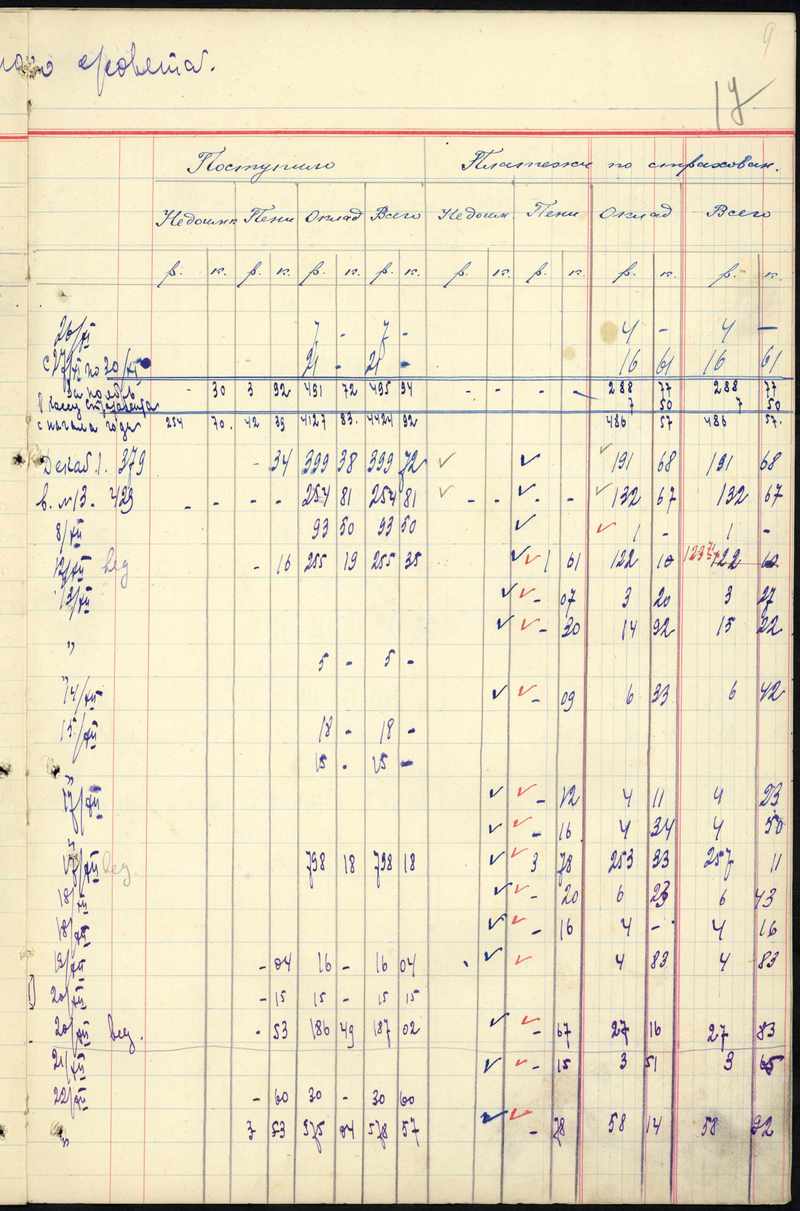 9
17
совета.
Поступило Платежи по страхован.
Недоимк Пени Оклад Всего Недоим Пени Оклад Всего
р. к. р. к. р. к. р. к. р. к. р. к. р. к. р. к.
26/XI 7 - 7 - 4 - 4 -
с 27/XI по 30/XI 21 - 21 - 16 61 16 61
- 30 3 92 491 72 495 94 - - - - 288 77 288 77
7 50 7 50
с начала года 254 70. 42 39 4127 83. 4424 92 486 57 486 57.
Декаб 1. 379 - 34 399 38 399 72 ✓ ✓ ✓ 191 68 191 68
в. №13. 429 - - - - 254 81 254 81 ✓ - - - - ✓ 132 67 132 67
8/XII 93 50 93 50 ✓ ✓ 1 - 1 -
12/XII вед - 16 255 19 255 35 ✓ ✓ 1 61 122 10
13/XII ✓ ✓ - 07 3 20 3 27
✓ ✓ - 30 14 92 15 22
" 5 - 5 -
14/XII ✓ ✓ - 09 6 33 6 42
15/XII 18 - 18 -
" 15 - 15 -
17/XII ✓ ✓ - 12 4 11 4 23
" ✓ ✓ - 16 4 34 4 50
18/XII вед. 798 18 798 18 ✓ ✓ 3 78 253 33 257 11
18/XII ✓ ✓ - 20 6 23 6 43
18/XII ✓ ✓ - 16 4 - 4 16
19/XII - 04 16 - 16 04 ✓ ✓ 4 83 4 83
20/XII - 15 15 - 15 15
20/XII вед. - 53 186 49 187 02 ✓ ✓ - 67 27 16 27 83
21/XII ✓ ✓ - 15 3 51 3 65
22/XII - 60 30 - 30 60
" 3 53 575 04 578 57 ✓ ✓ - 78 58 14 58 92